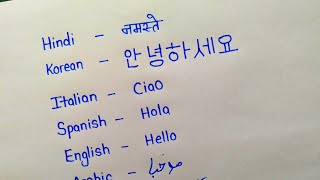 Hindi - नमस्ते
Korean - 안녕하세요
Italian - Ciao
Spanish - Hola
English - Hello
Arabic -